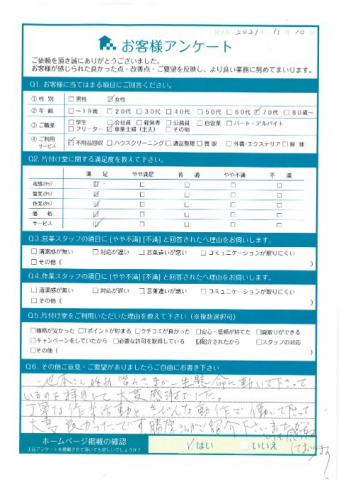 2021年 11月 10日
お客様アンケート
ご依頼を頂き誠にありがとうございました。
お客様が感じられた良かった点・改善点・ご要望を反映し、より良い業務に努めてまいります。
Q1. お客様に当てはまる項目にご回答ください。
①性別 □男性 ☑女性
②年齢 □~19歳 □20代 □30代 □40代 □50代 □60代 ☑70代 □80歳~
③ご職業 □学生 □会社員 □経営者 □公務員 □自営業 □パート・アルバイト
□フリーター ☑専業主婦(主夫) □その他
④ご利用サービス ☑不用品回収 □ハウスクリーニング □遺品整理 □買取 □外構・エクステリア □解体
Q2. 片付け堂に関する満足度を教えて下さい。
満足 やや満足 普通 やや不満 不満
電話受付 ☑ □ □ □ □
営業スタッフ ☑ □ □ □ □
作業スタッフ ☑ □ □ □ □
価格 ☑ □ □ □ □
サービス ☑ □ □ □ □
Q3. 営業スタッフの項目に[やや不満][不満]と回答された方へ理由をお伺いします。
□清潔感が無い □対応が遅い □言葉遣いが悪い □コミュニケーションが取りにくい
□その他(
Q4. 作業スタッフの項目に[やや不満][不満]と回答された方へ理由をお伺いします。
□清潔感が無い □対応が遅い □言葉遣いが悪い □コミュニケーションが取りにくい
□その他(
Q5. 片付け堂をご利用いただいた理由を教えて下さい(※複数選択可)
□価格が安かった □Tポイントが貯まる □クチコミが良かった □安心・信頼が持てた □買取りができる
□キャンペーンをしていたから □必要な許可を取得している ☑紹介されたから □スタッフの対応
□その他(
Q6. その他ご意見・ご要望がありましたらご自由にお書き下さい
一生懸命に動いて下さって
いるのを拝見して大変感謝でした。
丁寧な作業活動と
大変良かったです
ホームページ掲載の確認
☑はい □いいえ